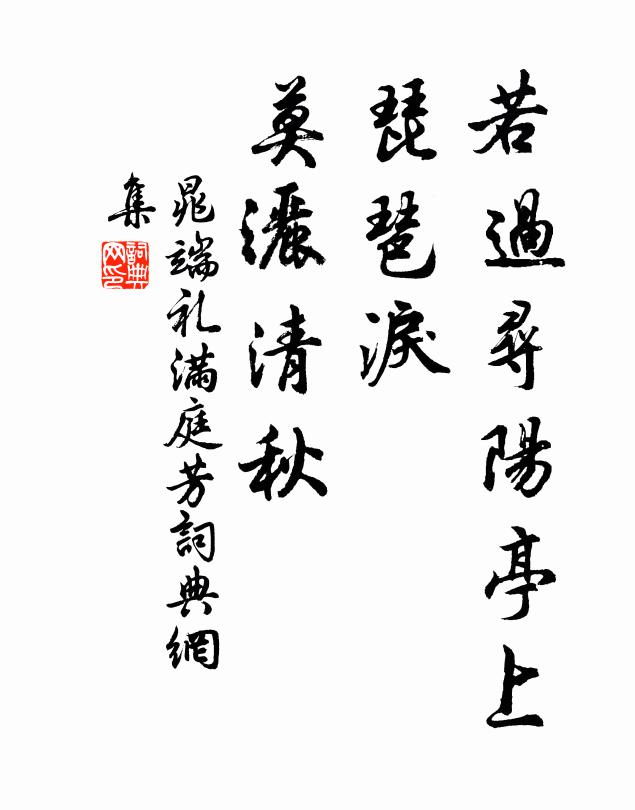 若過尋陽亭上
琵琶淚
莫灑清秋
晁端礼満庭芳詞典網
集
詞典
网印